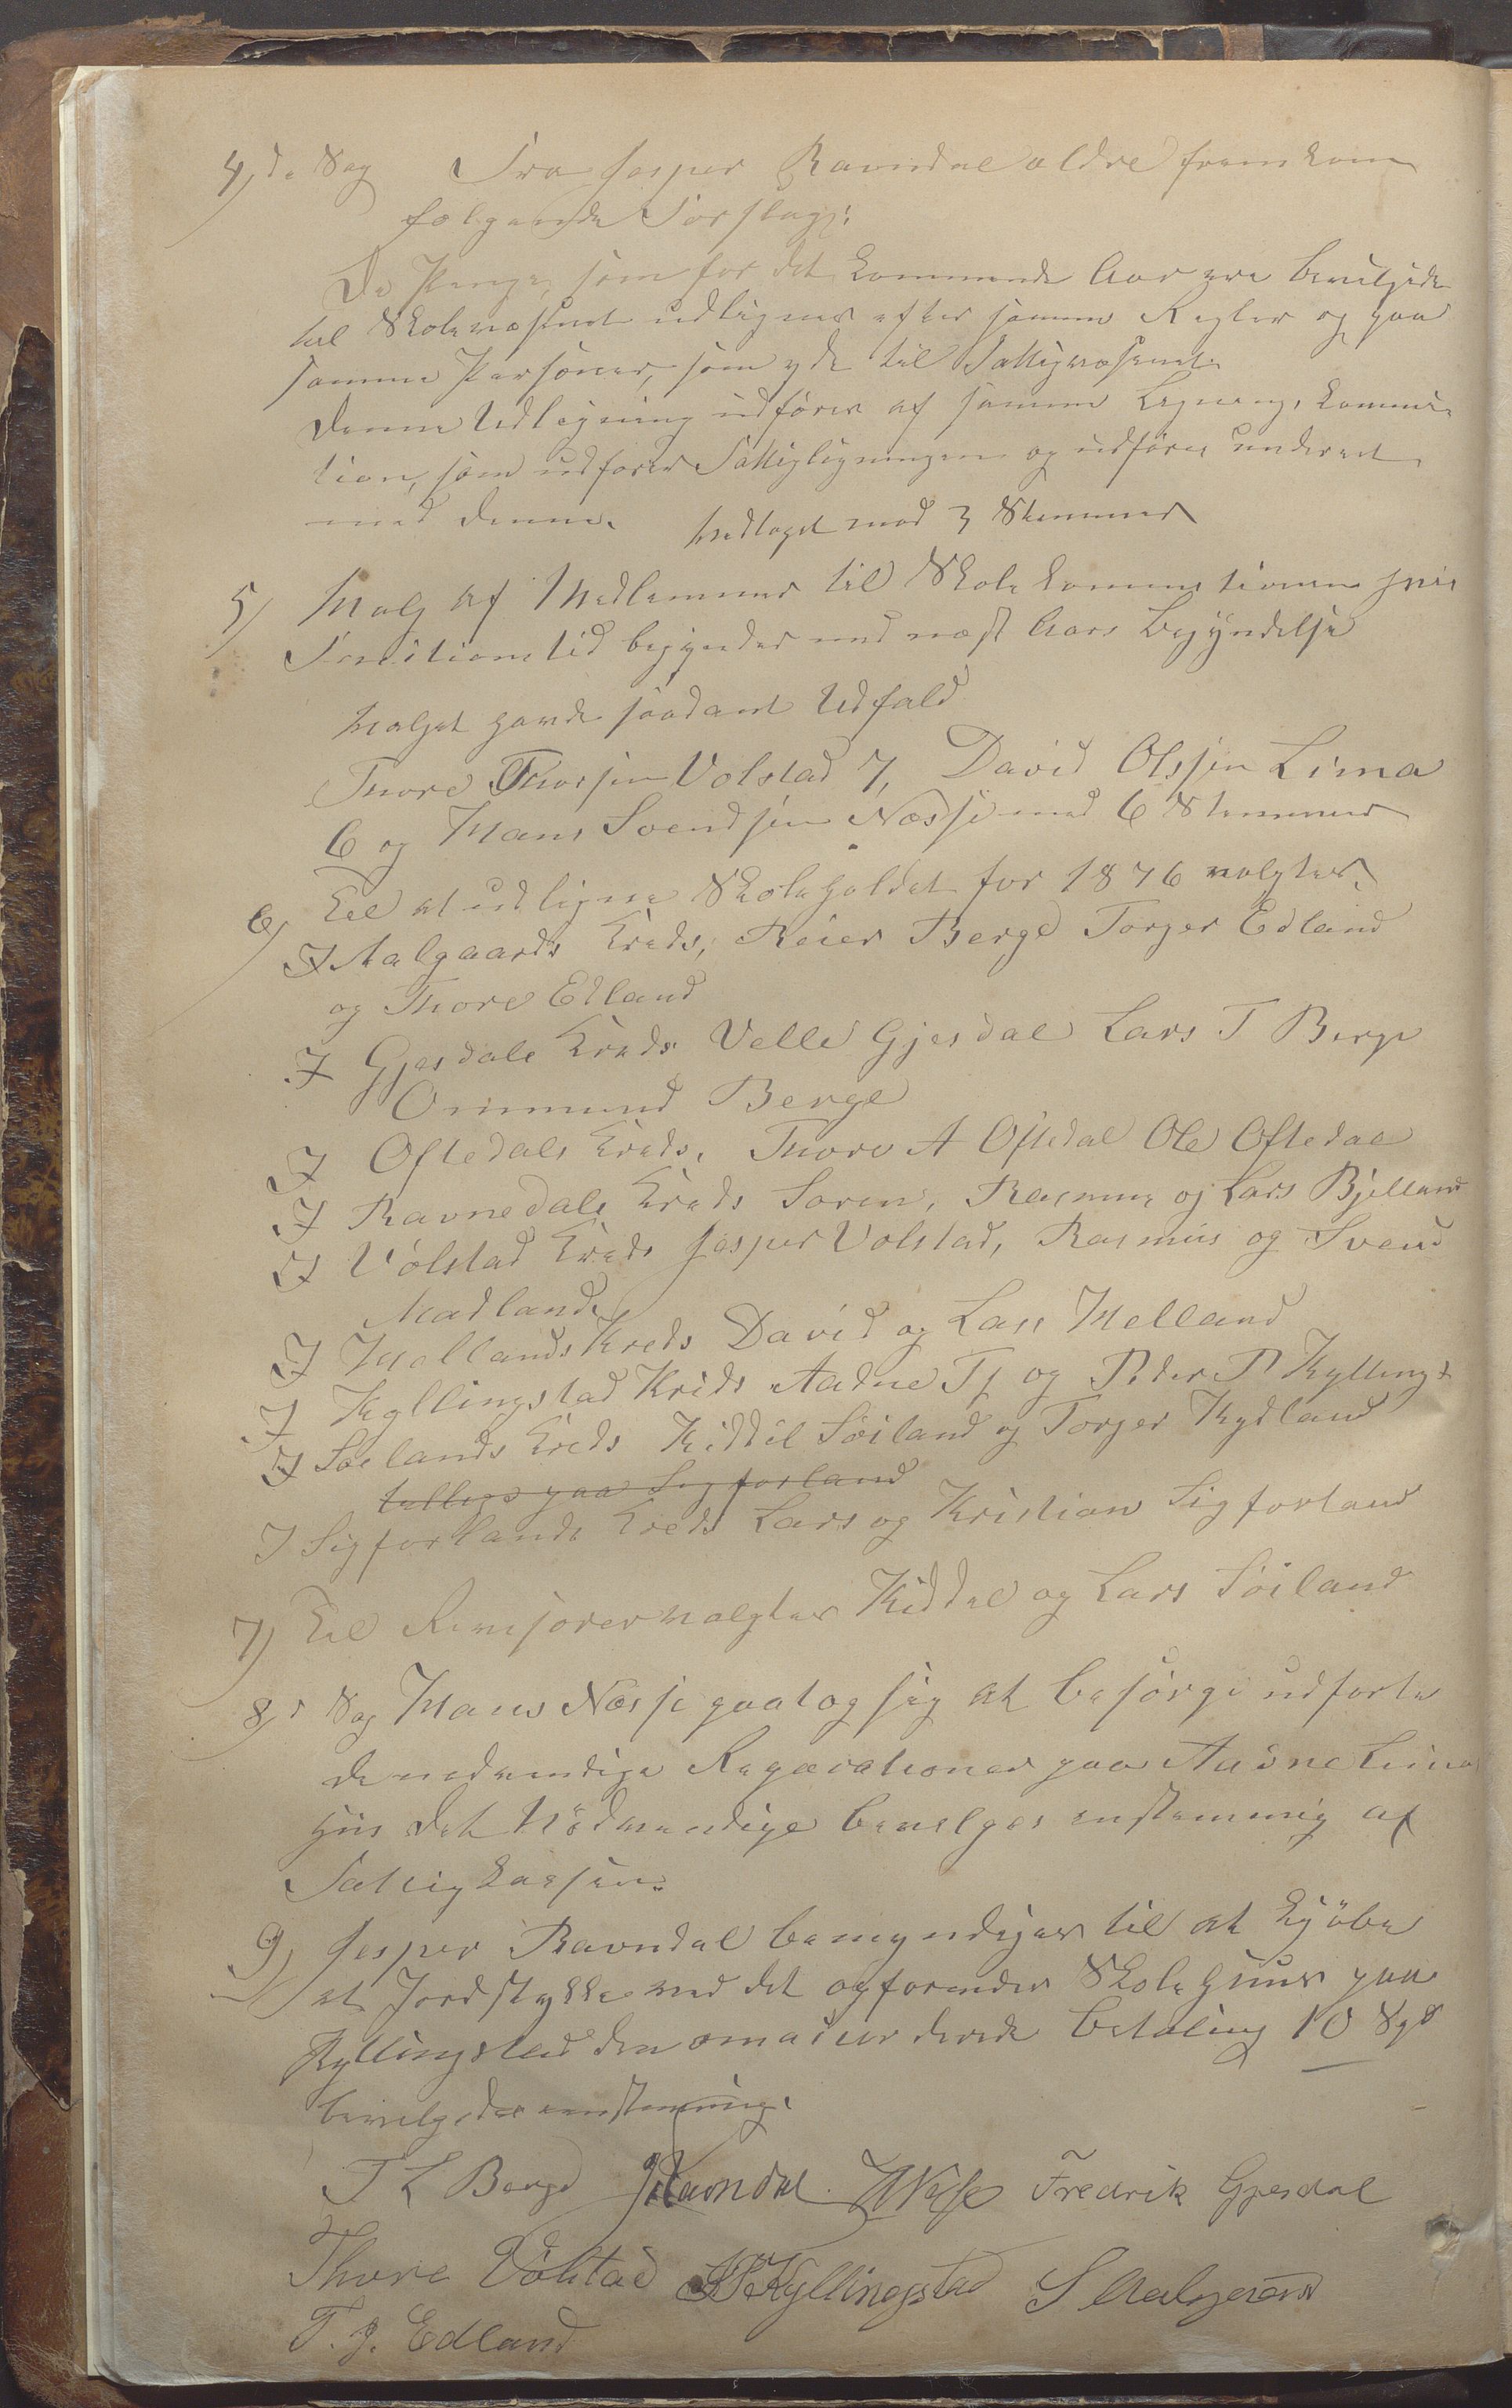 4,de Sag Fra Jesper Ravndal ældre fremkom
følgende Forslag:
De Penge, som for det kommende Aar ere bevilgede
til Skolevæsenet udlignes efter samme Regler og paa
samme Personer, som yde til Fattigvæsenet.
Denne Udligning udføres af samme Lignings kommis-
tion, som udfører Fattigligningen og udføres underet
med denne. Vedtaget mod 3 Stemmer
5/ Valg af Medlemmer til Skole kommitionen hvis
Funktionstid begynder med næst Aars Begyndelse
Valget havde saadant Udfald
Thore Thorsen Volstad 7, David Olssen Lima
6 og Hans Svendsen Næsse med 6 Stemmer
6/ Til at udligne Skoleholdet for 1876 valgtes
I Aalgaards Kreds, Reier Berge Torger Edland
og Thore Edland
I Gjesdals Kreds Velle Gjesdal Lars T Berge
Ommund Berge
I Oftedals Kreds, Thore A Oftedal Ole Oftedal
I Ravnedals Kreds Soren, Rasmus og Lars Bjelland
I Volstad Kreds Jesper Volstad, Rasmus og Svend
Madland
I Mellands Kreds David og Lars Melland
I Kyllingstad Kreds Aadne Tj og Peder P Kyllingst
I Søilands Kreds Kiddil Søiland og Torger Kydland
tillegs paa Sigforland
I Sigforlands Kreds Lars og Kristian Sigforland
7) Til Revisorer valgtes Kiddel og Lars Søiland
8, Sag Hans Næsse paatog sig at besørge udførte
de nødvendige Reparationer paa Aadne Lima
hus det Nødvendige bevilges enstemmig af
Fattigkassen.
9, Jesper Ravndal bemyndiges til at kjöbe
et Jordstykke ved det opførendes Skolehuus paa
Kyllingstad den omaccorderede Betaling 10 Spd
bevilgedes enstemmig.
T L Berge J Ravndal. H Næsse Fredrik Gjesdal
Thore Volstad P P Kyllingstad S Aalgaard
T. J. Edland